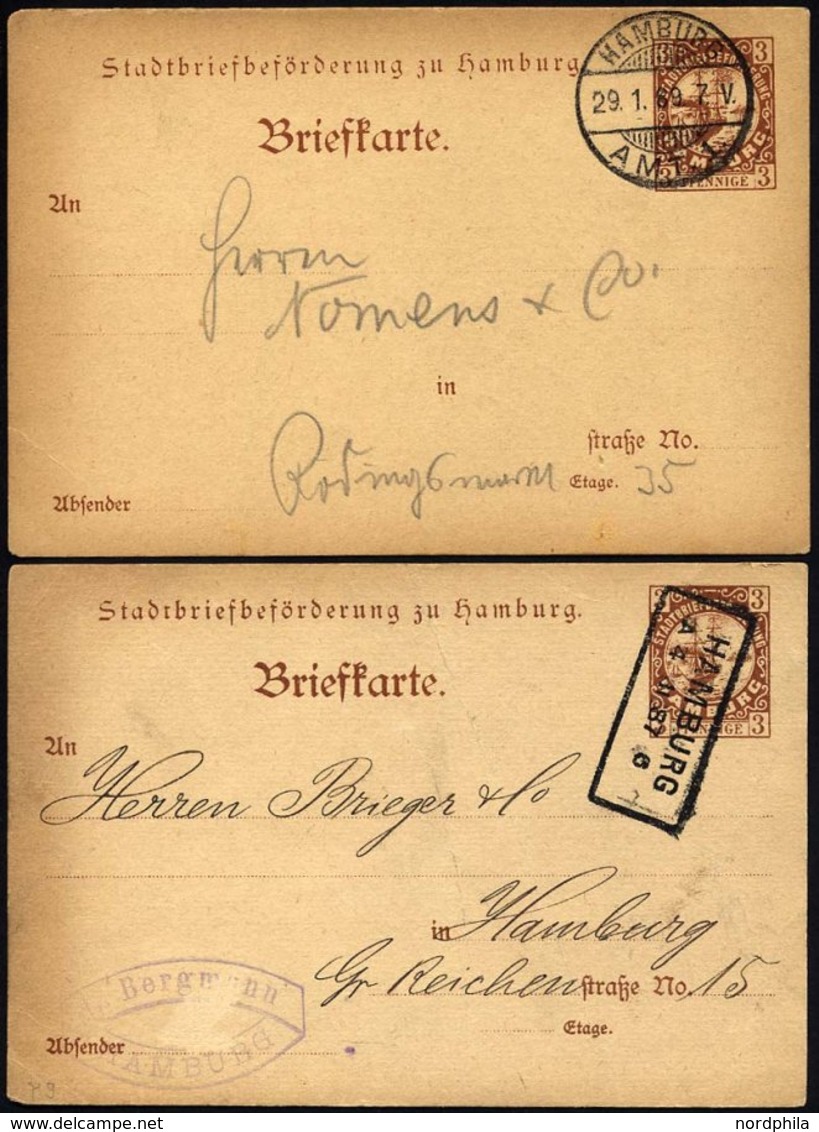 Stadtbriefbeförderung zu Hamburg.
Briefkarte.
HAMBURG
29. 1. 89. 7. V.
AMT. 1.
3 3
3 PFENNIGE 3
An
Herrn
Nomens & Co.
in
straße No.
Rödingsmarkt Etage. 35
Absender
Stadtbriefbeförderung zu Hamburg.
Briefkarte.
3
STADTBRIEFBEFÖRDERUNG
PFENNIGE 3
HAMBURG
An
Herren Brieger & Co
in Hamburg
Gr Reichenstraße No. 15
Etage.
Bergmann
HAMBURG
Absender
nordphila
www.delcampe.net